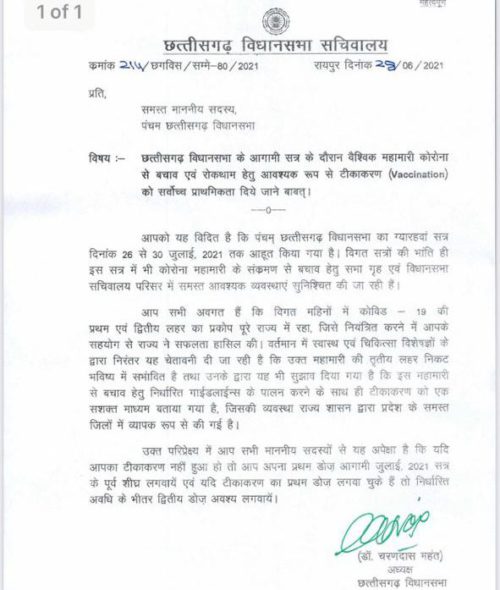 महत्वपूर्ण
1 of 1
छत्तीसगढ़ विधानसभा सचिवालय
कमांक /छगविस/सम्मे-80/2021 रायपुर दिनांक 29/06/2021
प्रति,
समस्त माननीय सदस्य,
पंचम छत्तीसगढ़ विधानसभा
विषय :– छत्तीसगढ़ विधानसभा के आगामी सत्र के दौरान वैश्विक महामारी कोरोना
से बचाव एवं रोकथाम हेतु आवश्यक रूप से टीकाकरण (Vaccination)
को सर्वोच्च प्राथमिकता दिये जाने बाबत्।
—0—
आपको यह विदित है कि पंचम् छत्तीसगढ़ विधानसभा का ग्यारहवां सत्र
दिनांक 26 से 30 जुलाई, 2021 तक आहूत किया गया है। विगत सत्रों की भांति ही
इस सत्र में भी कोरोना महामारी के संकमण से बचाव हेतु सभा गृह एवं विधानसभा
सचिवालय परिसर में समस्त आवश्यक व्यवस्थाएं सुनिश्चित की जा रही है।
आप सभी अवगत हैं कि विगत महिनों में कोविड – 19 की
प्रथम एवं द्वितीय लहर का प्रकोप पूरे राज्य में रहा, जिसे नियंत्रित करने में आपके
सहयोग से राज्य ने सफलता हासिल की। वर्तमान में स्वास्थ एवं चिकित्सा विशेषज्ञों के
द्वारा निरंतर यह चेतावनी दी जा रही है कि उक्त महामारी की तृतीय लहर निकट
भविष्य में संभावित है तथा उनके द्वारा यह भी सुझाव दिया गया है कि इस महामारी
से बचाव हेतु निर्धारित गाईडलाईन्स के पालन करने के साथ ही टीकाकरण को एक
सशक्त माध्यम बताया गया है, जिसकी व्यवस्था राज्य शासन द्वारा प्रदेश के समस्त
जिलों में व्यापक रूप से की गई है।
उक्त परिप्रेक्ष्य में आप सभी माननीय सदस्यों से यह अपेक्षा है कि यदि
आपका टीकाकरण नहीं हुआ हो तो आप अपना प्रथम डोज़ आगामी जुलाई, 2021 सत्र
के पूर्व शीघ्र लगवायें एवं यदि टीकाकरण का प्रथम डोज लगवा चुके हैं तो निर्धारित
अवधि के भीतर द्वितीय डोज़ अवश्य लगवायें।
(डॉ. चरणदास महंत)
अध्यक्ष
छत्तीसगढ़ विधानसभा